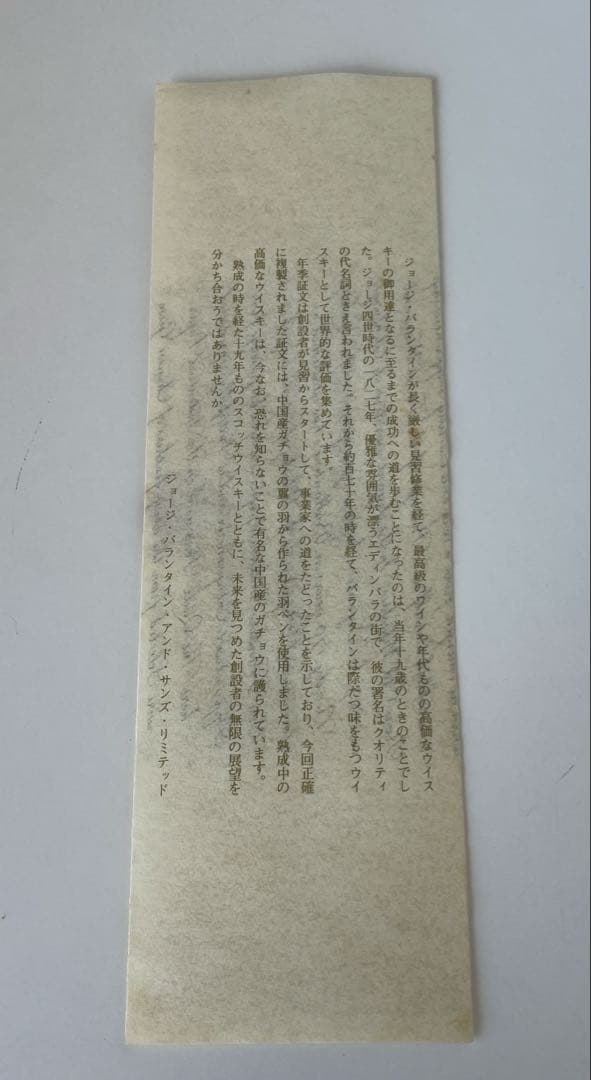 ジョージ・バランタインが長く厳しい見習修業を経て、最高級のワインや年代ものの高価なウイス
キーの御用達となるに至るまでの成功への道を歩むことになったのは、当年十九歳のときのことでし
た。ジョージ四世時代の一八二七年、優雅な雰囲気が漂うエディンバラの街で、彼の署名はクオリティ
の代名詞とさえ言われました。それから約百七十年の時を経て、バランタインは際だつ味をもつウイ
スキーとして世界的な評価を集めています。
年季証文は創設者が見習からスタートして、事業家への道をたどったことを示しており、今回正確
に複製されました証文には、中国産ガチョウの翼の羽から作られた羽ペンを使用しました。熟成中の
高価なウイスキーは、今なお、恐れを知らないことで有名な中国産のガチョウに護られています。
熟成の時を経た十九年もののスコッチウイスキーとともに、未来を見つめた創設者の無限の展望を
分かち合おうではありませんか。
ジョージ・バランタイン・アンド・サンズ・リミテッド